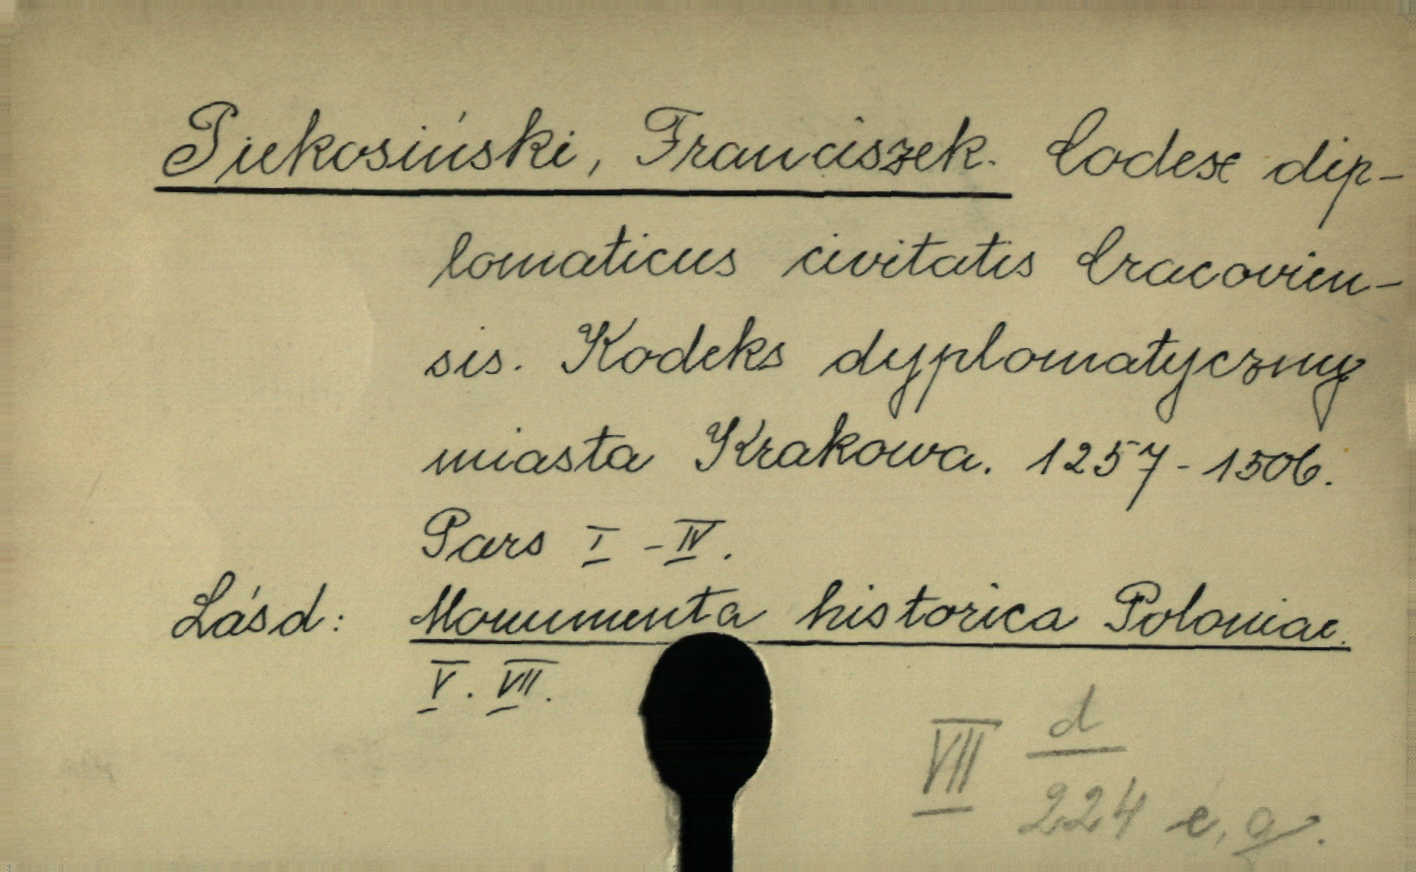 Piekosiński, Franciszek. Codex dip-
lomaticus civitatis Cracovien-
sis. Kodeks dyplomatyczny
miasta Krakowa. 1257-1506.
Pars I-IV.
Lásd: Monumenta historica Poloniae.
V. VII.
VII d/224 e, g.